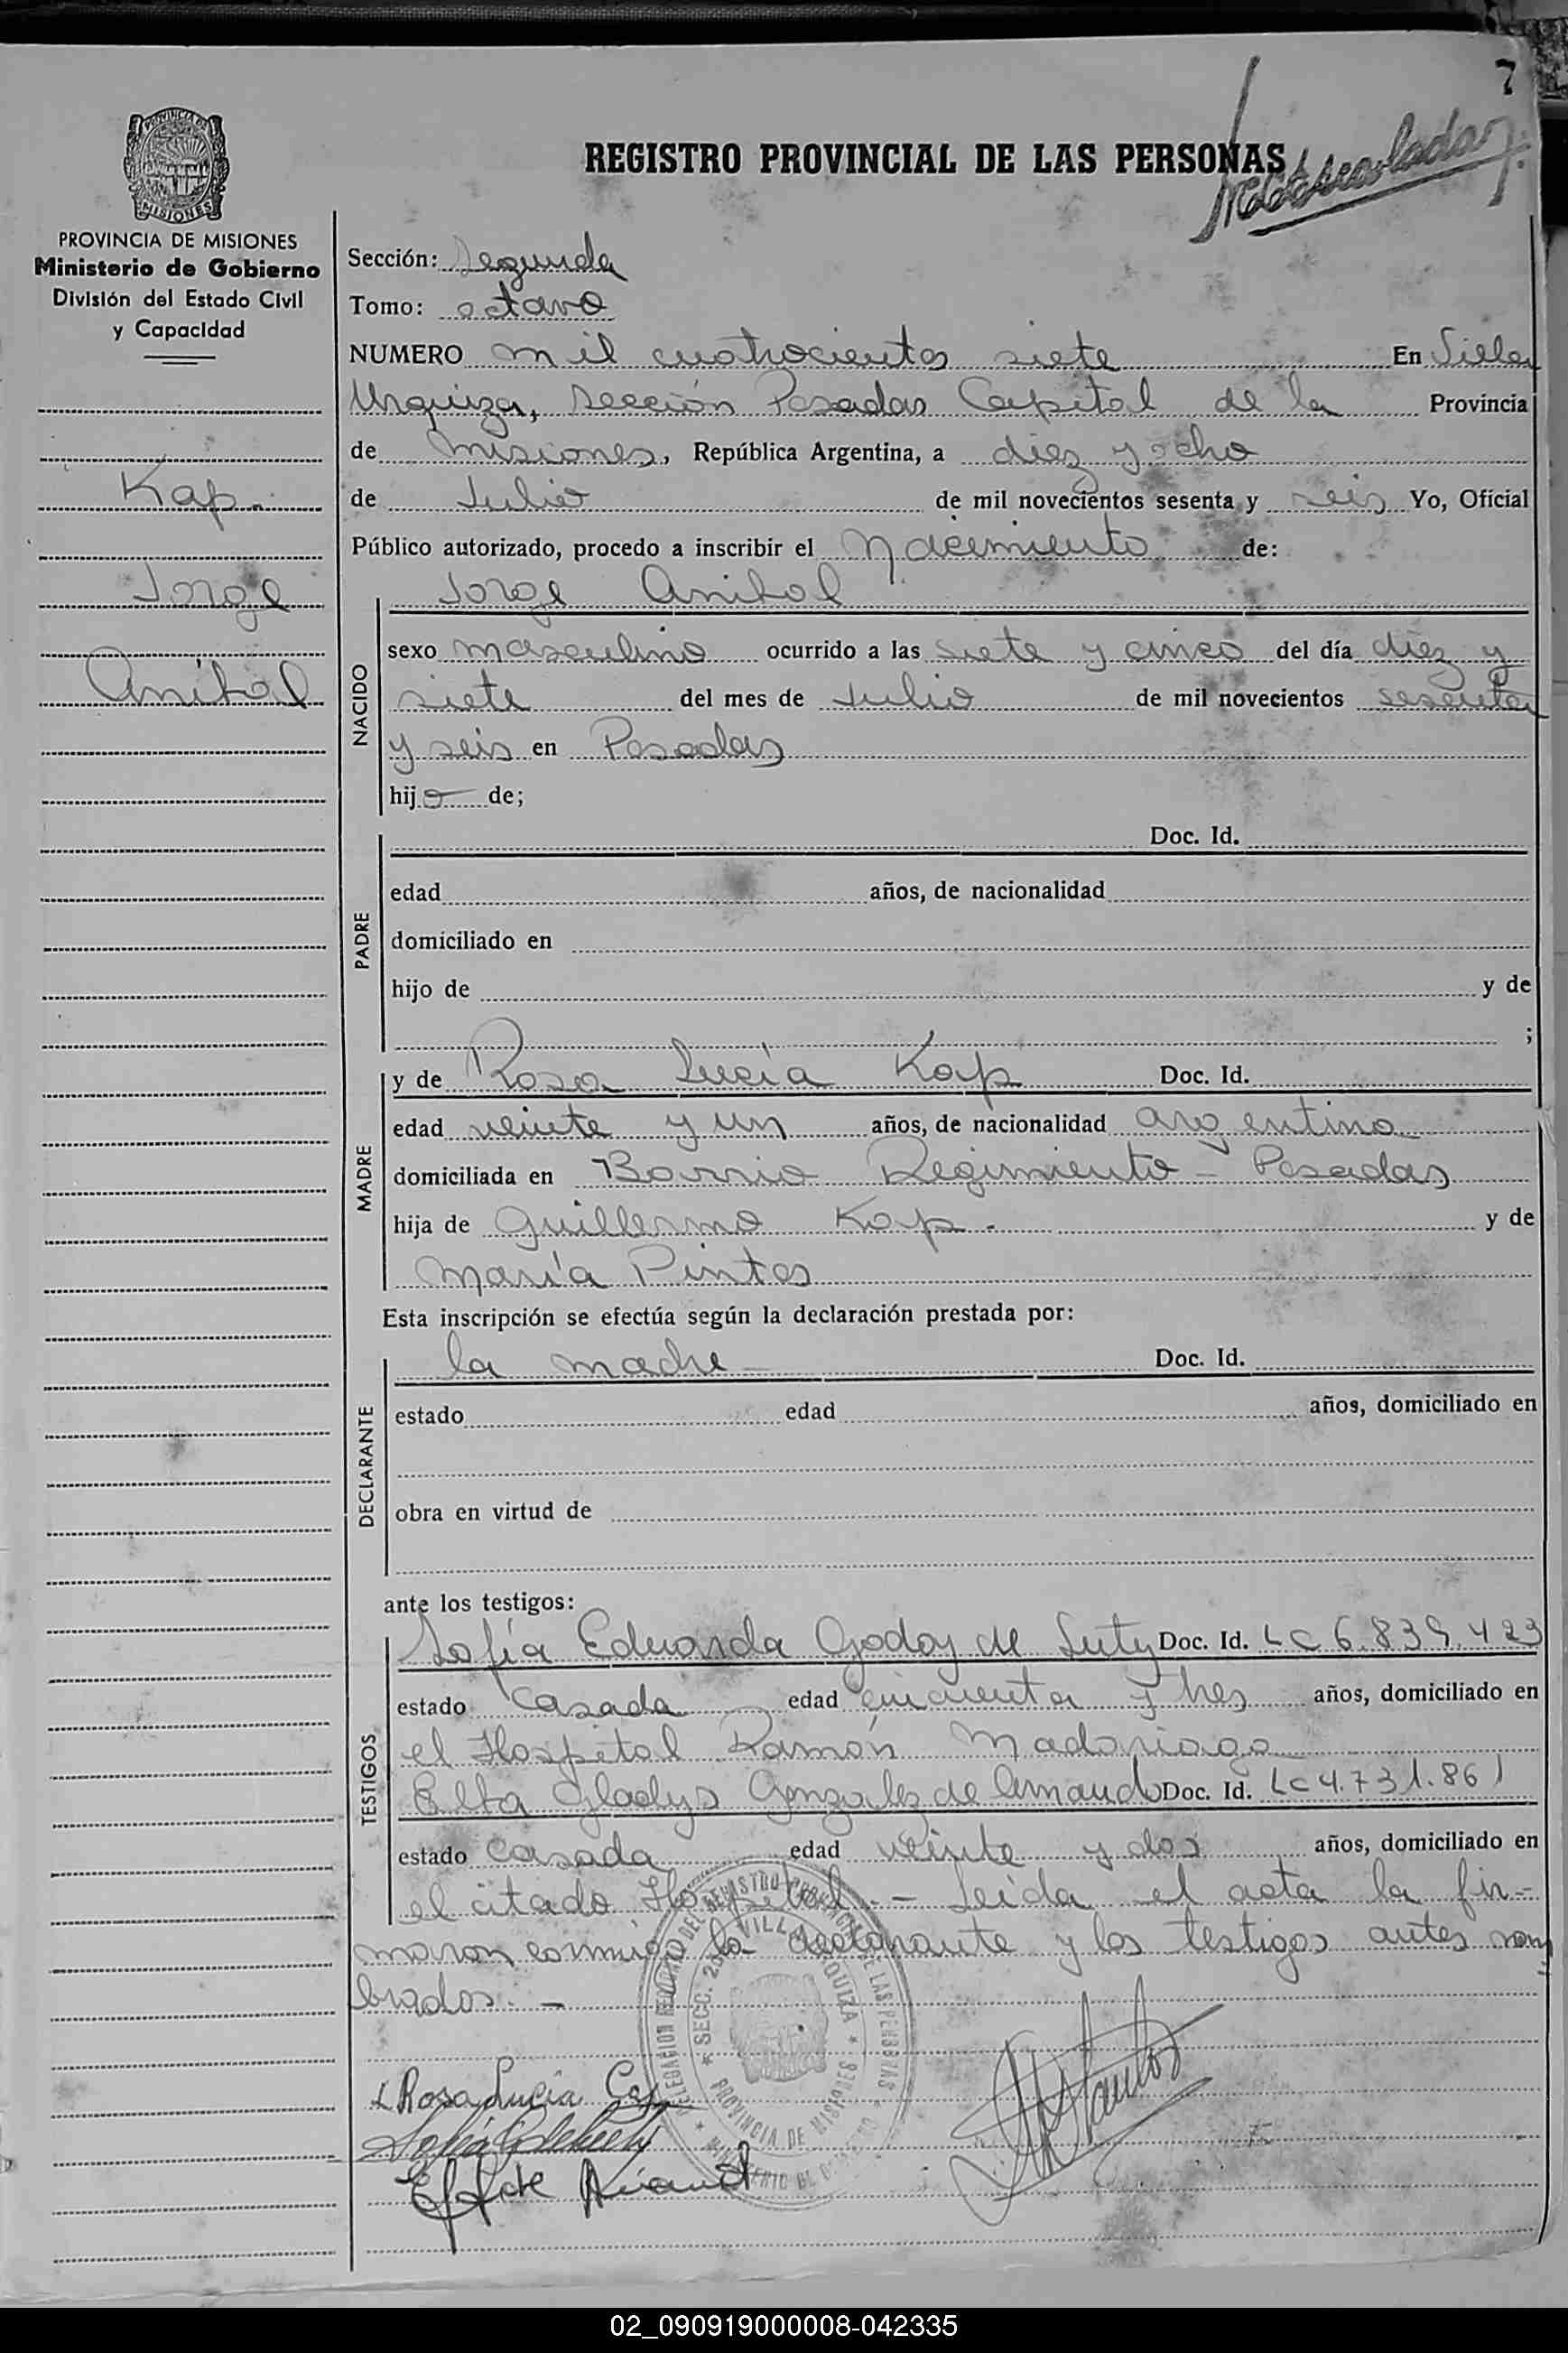 7
REGISTRO PROVINCIAL DE LAS PERSONAS
PROVINCIA DE MISIONES
Ministerio de Gobierno
División del Estado Civil
y Capacidad
Kap.
Jorge
Aníbal
Sección: Segunda
Tomo: octavo
NUMERO mil cuatrocientos siete En Villa
Urquiza, Sección Posadas Capital de la Provincia
de Misiones, República Argentina, a diez y ocho
de Julio de mil novecientos sesenta y seis Yo, Oficial
Público autorizado, procedo a inscribir el Nacimiento de:
NACIDO
Jorge Anibal
sexo masculino ocurrido a las siete y cinco del día diez y
siete del mes de Julio de mil novecientos sesenta
y seis en Posadas
hijo de;
PADRE
Doc. Id.
edad años, de nacionalidad
domiciliado en
hijo de y de
;
MADRE
y de Rosa Lucía Kap Doc. Id.
edad veinte y un años, de nacionalidad argentina
domiciliada en Barrio Regimiento - Posadas
hija de Guillermo Kap. y de
María Pintos
Esta inscripción se efectúa según la declaración prestada por:
DECLARANTE
la madre Doc. Id.
estado edad años, domiciliado en
obra en virtud de
ante los testigos:
TESTIGOS
Sofía Eduarda Godoy de Luty Doc. Id. LC 6.839.423
estado casada edad cincuenta y tres años, domiciliado en
el Hospital Ramón Madariaga
Elba Gladys Gonzalez de Amaud Doc. Id. LC 4.731.861
estado casada edad veinte y dos años, domiciliado en
el citado Hospital. - Leída el acta la fir-
maron conmigo la declarante y los testigos antes nom
brados. -
Rosa Lucia
SECC. 2da VILLA URQUIZA
PROVINCIA DE MISIONES
02_090919000008-042335